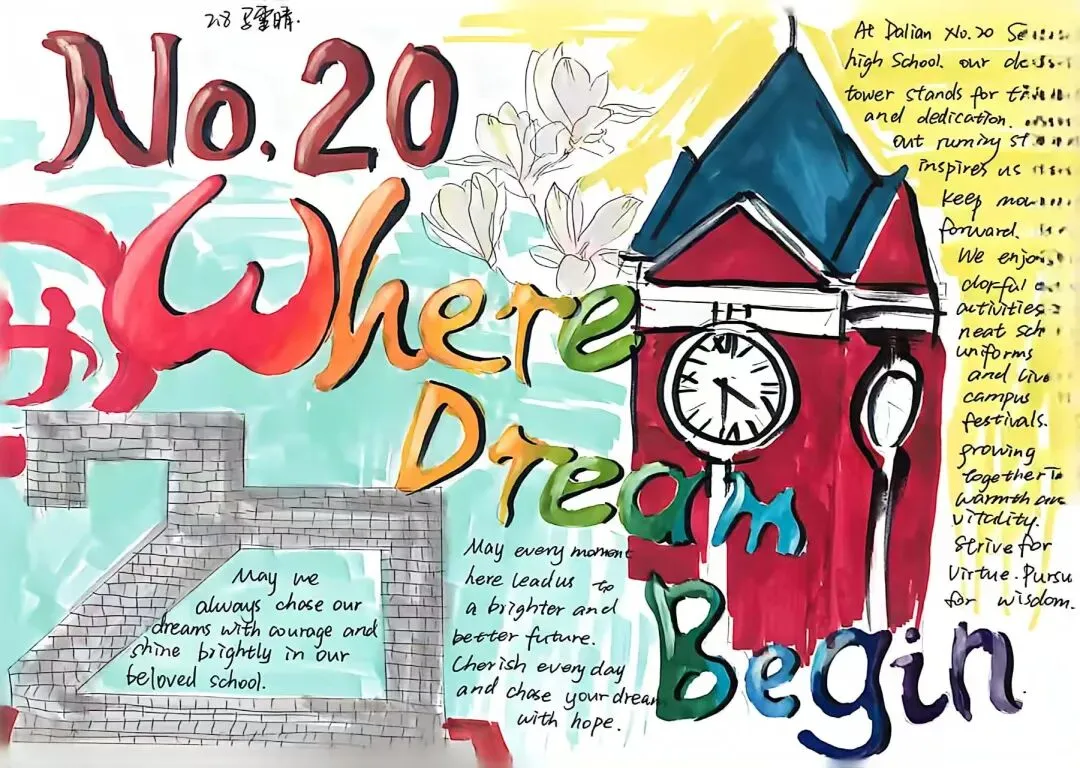 2.8
No.20
Where
Dream
Begin
At Dalian No.20
high School. our
tower stands for
and dedication.
Out runing
inspires us
keep
forward.
We enjoy
olorful
activities
neat sch
uniforms
and live
campus
festivals.
growing
together
warmth
vitality.
Strive for
virtue. Pursu
for wisdom.
20
May we
always chase our
dreams with courage and
shine brightly in our
beloved school.
May every moment
here lead us to
a brighter and
better future.
Cherish every day
and chase your dream
with hope.